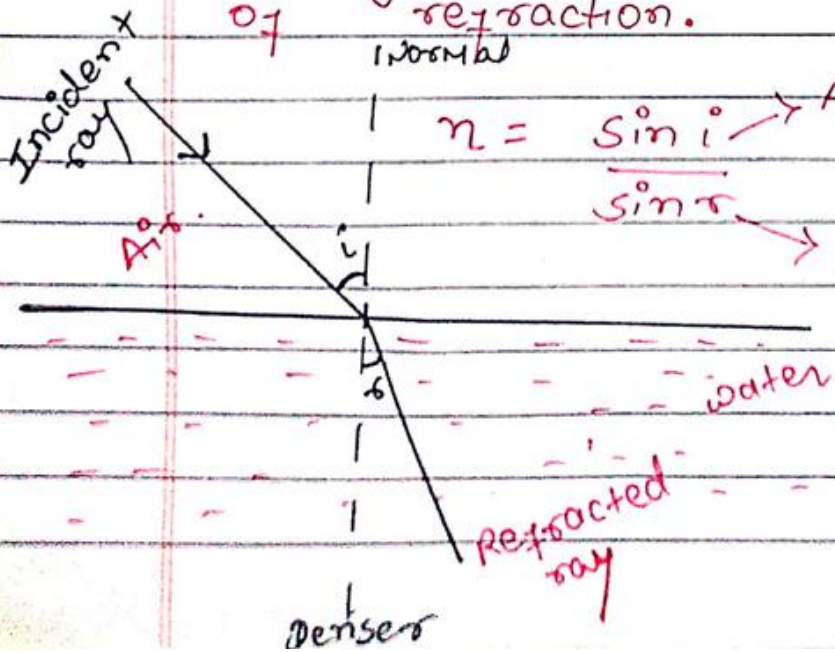 of refraction.
Normal
Incident
ray
n = sin i
sin r
Air
i
r
water
Refracted
ray
Denser